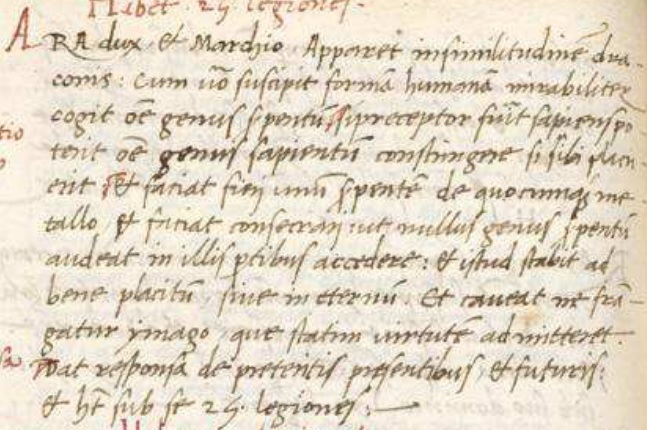 Habet · 25 · legiones ·
ARA dux · Et Marchio · Apparet in similitudinē dra-
conis : Cum ūo suscipit formā humanā mirabiliter
cogit oē genus spentū si preceptor fuīt sapiens po
terit oē genus sapientū constringere si sibi placu-
erit Et faciat fieri unū spentē de quocumq; me
tallo · et faciat consecrari : ut nullus genus spentū
audeat in illis ptibus accedere : Et istud stabit ad
bene placitū sive in eternū · Et caveat ne frā-
gatur ymago · que statim virtutē admitteret ·
Dat responsa de preteritis presentibus et futuris :
et hēt sub se 25 · legiones :